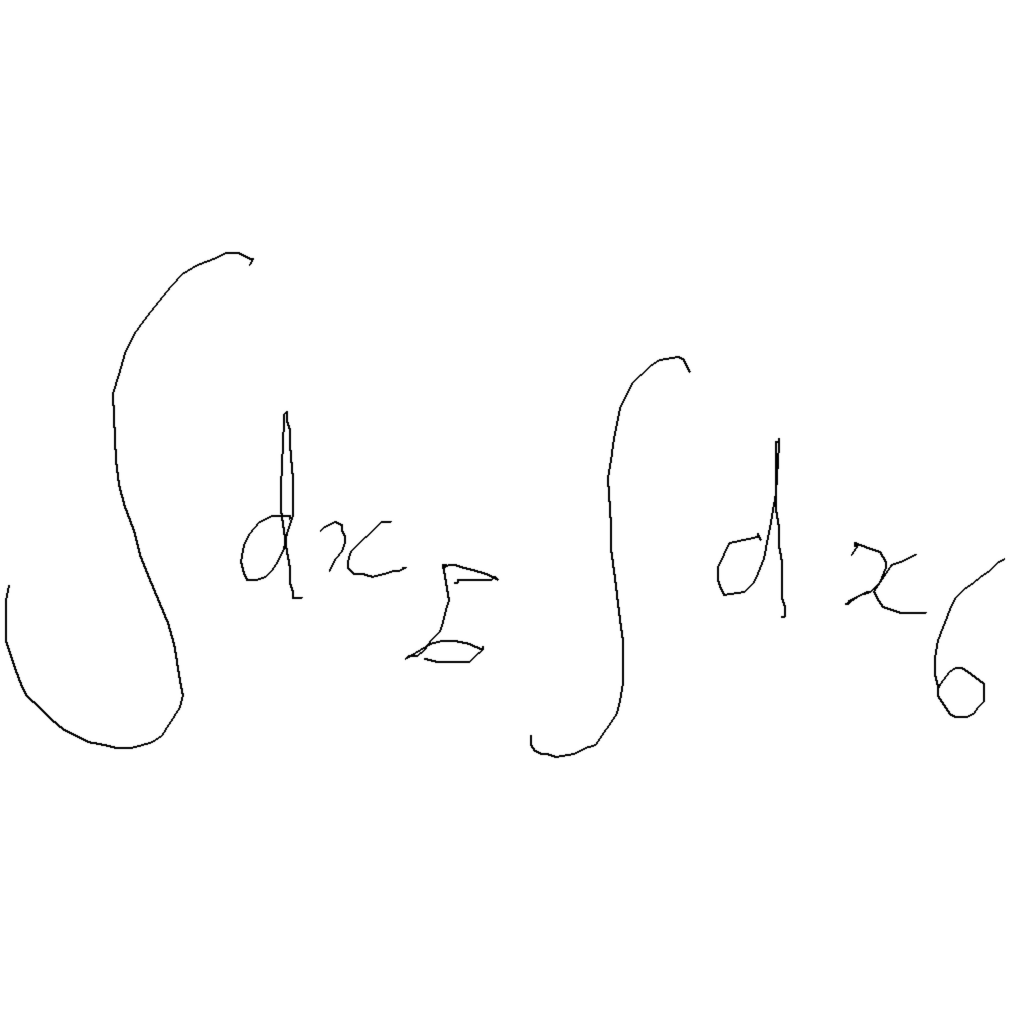 ∫dx ∫dx₆